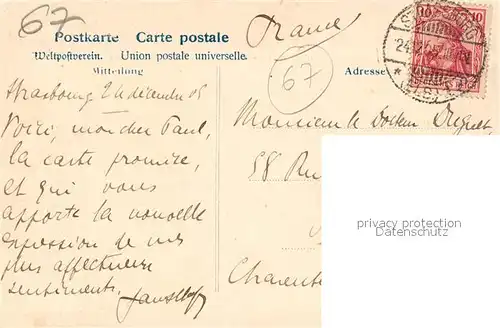 67
France
Postkarte Carte postale
Weltpostverein. Union postale universelle.
Mitteilung
Adresse
67
10 10
Strasbourg 24 décembre 05
Voici, mon cher Paul,
la carte promise,
et qui vous
apporte la nouvelle
expression de mes
plus affectueux
sentiments.
Monsieur le Docteur
58 Rue
Charente
privacy protection
Datenschutz